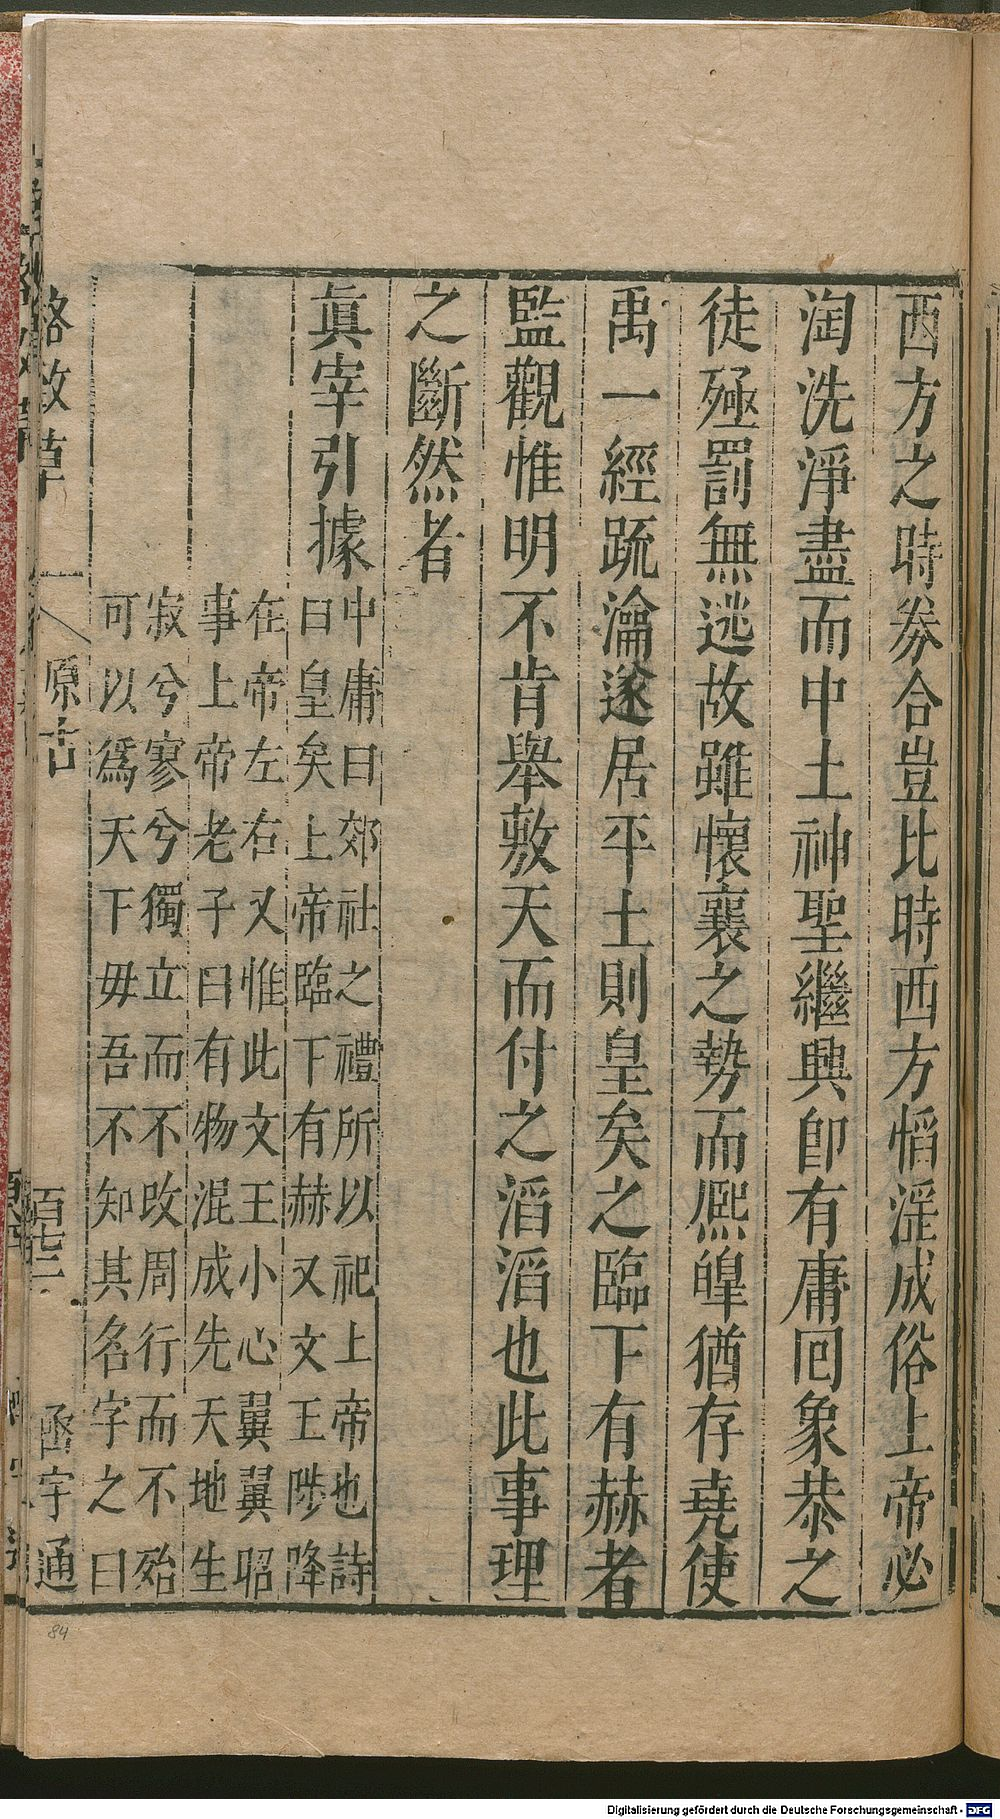 西方之時劵合豈比時西方慆淫成俗上帝必
淘洗淨盡而中土神聖繼興卽有庸回象恭之
徒殛罰無逃故雖懷襄之勢而熈皥猶存堯使
禹一經䟽瀹遂居平土則皇矣之臨下有赫者
監觀惟明不肯舉敷天而付之滔滔也此事理
之斷然者
眞宰引據
中庸曰郊社之禮所以祀上帝也詩
曰皇矣上帝臨下有赫又文王陟降
在帝左右又惟此文王小心翼翼昭
事上帝老子曰有物混成先天地生
寂兮寥兮獨立而不改周行而不殆
可以爲天下毋吾不知其名字之曰
格致草
原古
百七十二
函宇通
84
Digitalisierung gefördert durch die Deutsche Forschungsgemeinschaft - DFG